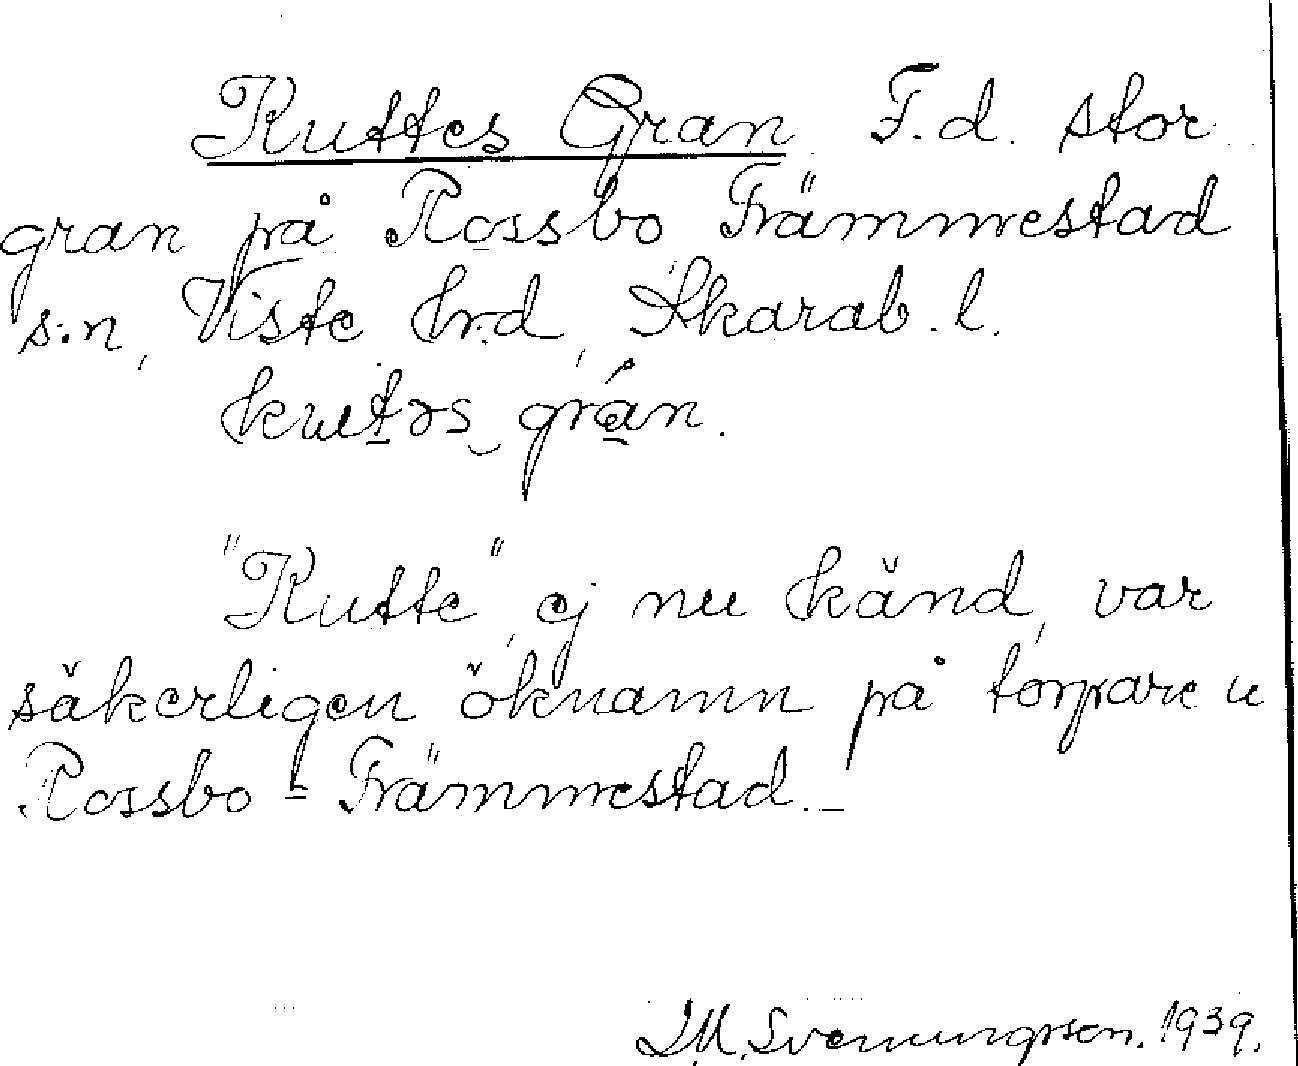 Kuttes Gran F.d. stor
gran på Rossbo Främmestad
s:n, Viste hrd, Skarab. l.
kutǝs grán.
"Kutte", ej nu känd, var
säkerligen öknamn på torpare u
Rossbo - Främmestad. -
Svenungsson. 1939.